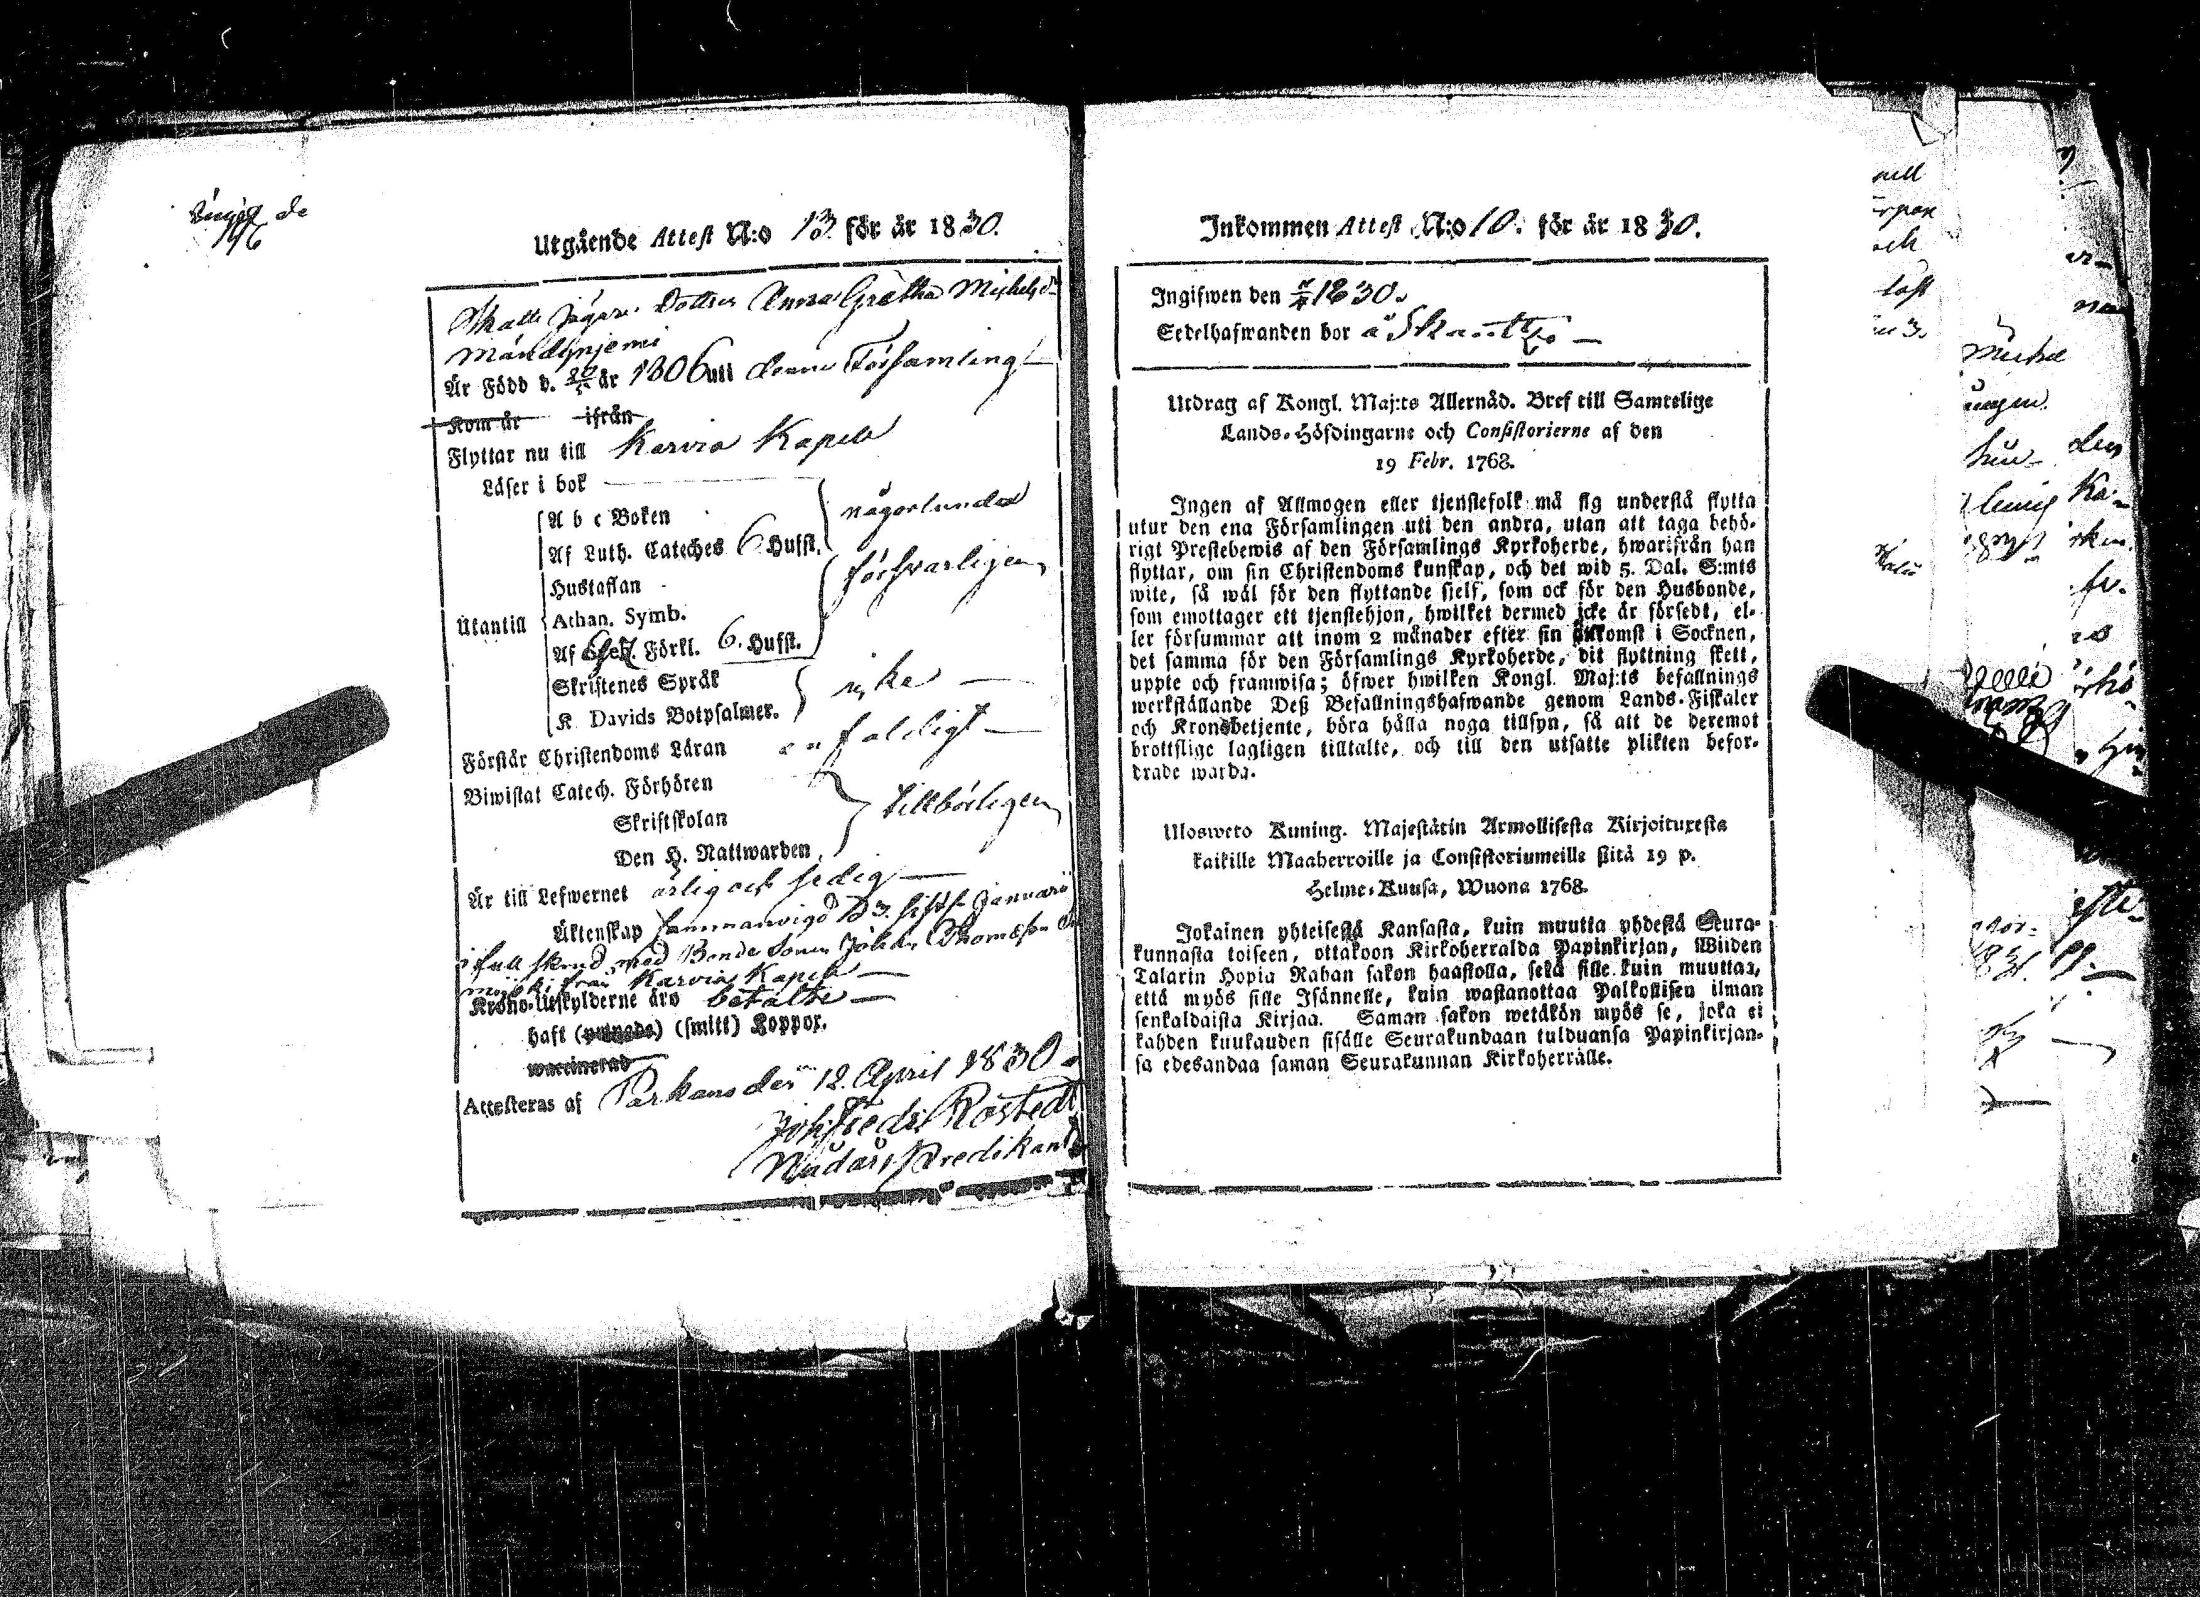 146
Utgående Attest N:o 13. för år 1830.
Skatte Jägare Dottren Anna Gretha Michelsdr
Mändynjemi
Är Född d. år 1806 uti denna Församling
Kom år ifrån
Flyttar nu till Karvia Kapell
Läser i bok
någorlunda
A b c Boken
Af Luth. Cateches 6 Hufst.
försvarligen
Hustaflan
Utantill Athan. Symb.
Af Förkl. 6. Hufst.
Skriftenes Språk
icke
K. Davids Botpsalmer.
Förstår Christendoms Läran enfaldigt
Biwistat Catech. Förhören
tillbörligen
Skriftskolan
Den H. Nattwarden
Är till Lefwernet ärlig och sedig
Äktenskap sammanvigd d 3. sistl. Januarii
i full skrud med Bonde Sonen Johan Thomasson
från Karvia Kapell
Krono-Utskylderne äro betalte
haft (smitt) Koppor.
waccinerad
Attesteras af Parkano den 12. April 1830
Joh Fredr. Rostedt
Predikant
Inkommen Attest N:o 10. för år 1830.
Ingifwen den 1830.
Sedelhafwanden bor å
Utdrag af Kongl. Maj:ts Allernåd. Bref till Samtelige
Lands-Höfdingarne och Consistorierne af den
19 Febr. 1768.
Ingen af Allmogen eller tjenstefolk må sig understå flytta
utur den ena Församlingen uti den andra, utan att taga behö-
rigt Prestebewis af den Församlings Kyrkoherde, hwarifrån han
flyttar, om sin Christendoms kunskap, och det wid 5. Dal. S:mts
wite, så wäl för den flyttande sjelf, som ock för den Husbonde,
som emottager ett tjenstehjon, hwilket dermed icke är försedt, el-
ler försummar att inom 2 månader efter sin ankomst i Socknen,
det samma för den Församlings Kyrkoherde, dit flyttning skett,
uppte och framwisa; öfwer hwilken Kongl. Maj:ts befallnings
werkställande Deß Befallningshafwande genom Lands-Fiskaler
och Kronobetjente, böra hålla noga tillsyn, så att de deremot
brottslige lagligen tilltalte, och till den utsatte plikten befor-
drade warda.
Uloswето Kuning. Majestätin Armollisesta Kirjoituxesta
kaikille Maaherroille ja Consistoriumeille siitä 19 p.
Helme-Kuusa, Wuona 1768.
Jokainen yhteisestä Kansasta, kuin muutta yhdestä Seura-
kunnasta toiseen, ottakoon Kirkoherralda Papinkirjan, Wiiden
Talarin Hopia Rahan sakon haastolla, sekä sille kuin muuttaa,
että myös sille Isännelle, kuin wastanottaa Palkollisen ilman
senkaldaista Kirjaa. Saman sakon wetäkön myös se, joka ei
kahden kuukauden sisälle Seurakundaan tulduansa Papinkirjan-
sa edesandaa saman Seurakunnan Kirkoherralle.